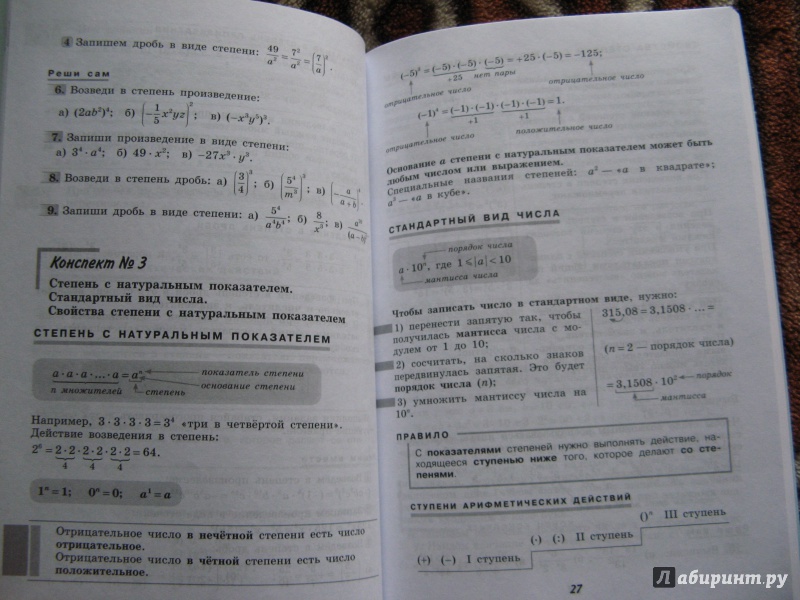 4 Запишем дробь в виде степени: 49/a² = 7²/a² = (7/a)².
Реши сам
6. Возведи в степень произведение:
а) (2ab²)⁴; б) (−1/5 x²yz)²; в) (−x³y⁵)³.
7. Запиши произведение в виде степени:
а) 3⁴ · a⁴; б) 49 · x²; в) −27x³ · y³.
8. Возведи в степень дробь: а) (3/4)³; б) (5⁴/m³)²; в) (−a/(a+b)
9. Запиши дробь в виде степени: а) 5⁴/(a⁴b⁴); б) 8/x³; в)
Конспект № 3
Степень с натуральным показателем.
Стандартный вид числа.
Свойства степени с натуральным показателем
СТЕПЕНЬ С НАТУРАЛЬНЫМ ПОКАЗАТЕЛЕМ
a · a · a · ... · a = aⁿ показатель степени
основание степени
n множителей степень
Например, 3 · 3 · 3 · 3 = 3⁴ «три в четвёртой степени».
Действие возведения в степень:
2⁶ = 2 · 2 · 2 · 2 · 2 · 2 = 64.
4 4 4
1ⁿ = 1; 0ⁿ = 0; a¹ = a
Отрицательное число в нечётной степени есть число
отрицательное.
Отрицательное число в чётной степени есть число
положительное.
(−5)³ = (−5) · (−5) · (−5) = +25 · (−5) = −125;
+25 нет пары
отрицательное число отрицательное число
(−1)⁴ = (−1) · (−1) · (−1) · (−1) = 1.
+1 +1
отрицательное число положительное число
Основание a степени с натуральным показателем может быть
любым числом или выражением.
Специальные названия степеней: a² — «a в квадрате»;
a³ — «a в кубе».
СТАНДАРТНЫЙ ВИД ЧИСЛА
порядок числа
a · 10ⁿ, где 1 ⩽ |a| < 10
мантисса числа
Чтобы записать число в стандартном виде, нужно:
1) перенести запятую так, чтобы
получилась мантисса числа с мо-
дулем от 1 до 10;
2) сосчитать, на сколько знаков
передвинулась запятая. Это будет
порядок числа (n);
3) умножить мантиссу числа на
10ⁿ.
315,08 = 3,1508 · ... =
(n = 2 — порядок числа)
= 3,1508 · 10² порядок
мантисса
ПРАВИЛО
С показателями степеней нужно выполнять действие, на-
ходящееся ступенью ниже того, которое делают со сте-
пенями.
СТУПЕНИ АРИФМЕТИЧЕСКИХ ДЕЙСТВИЙ
()ⁿ III ступень
(·) (:) II ступень
(+) (−) I ступень
27
Лабиринт.ру